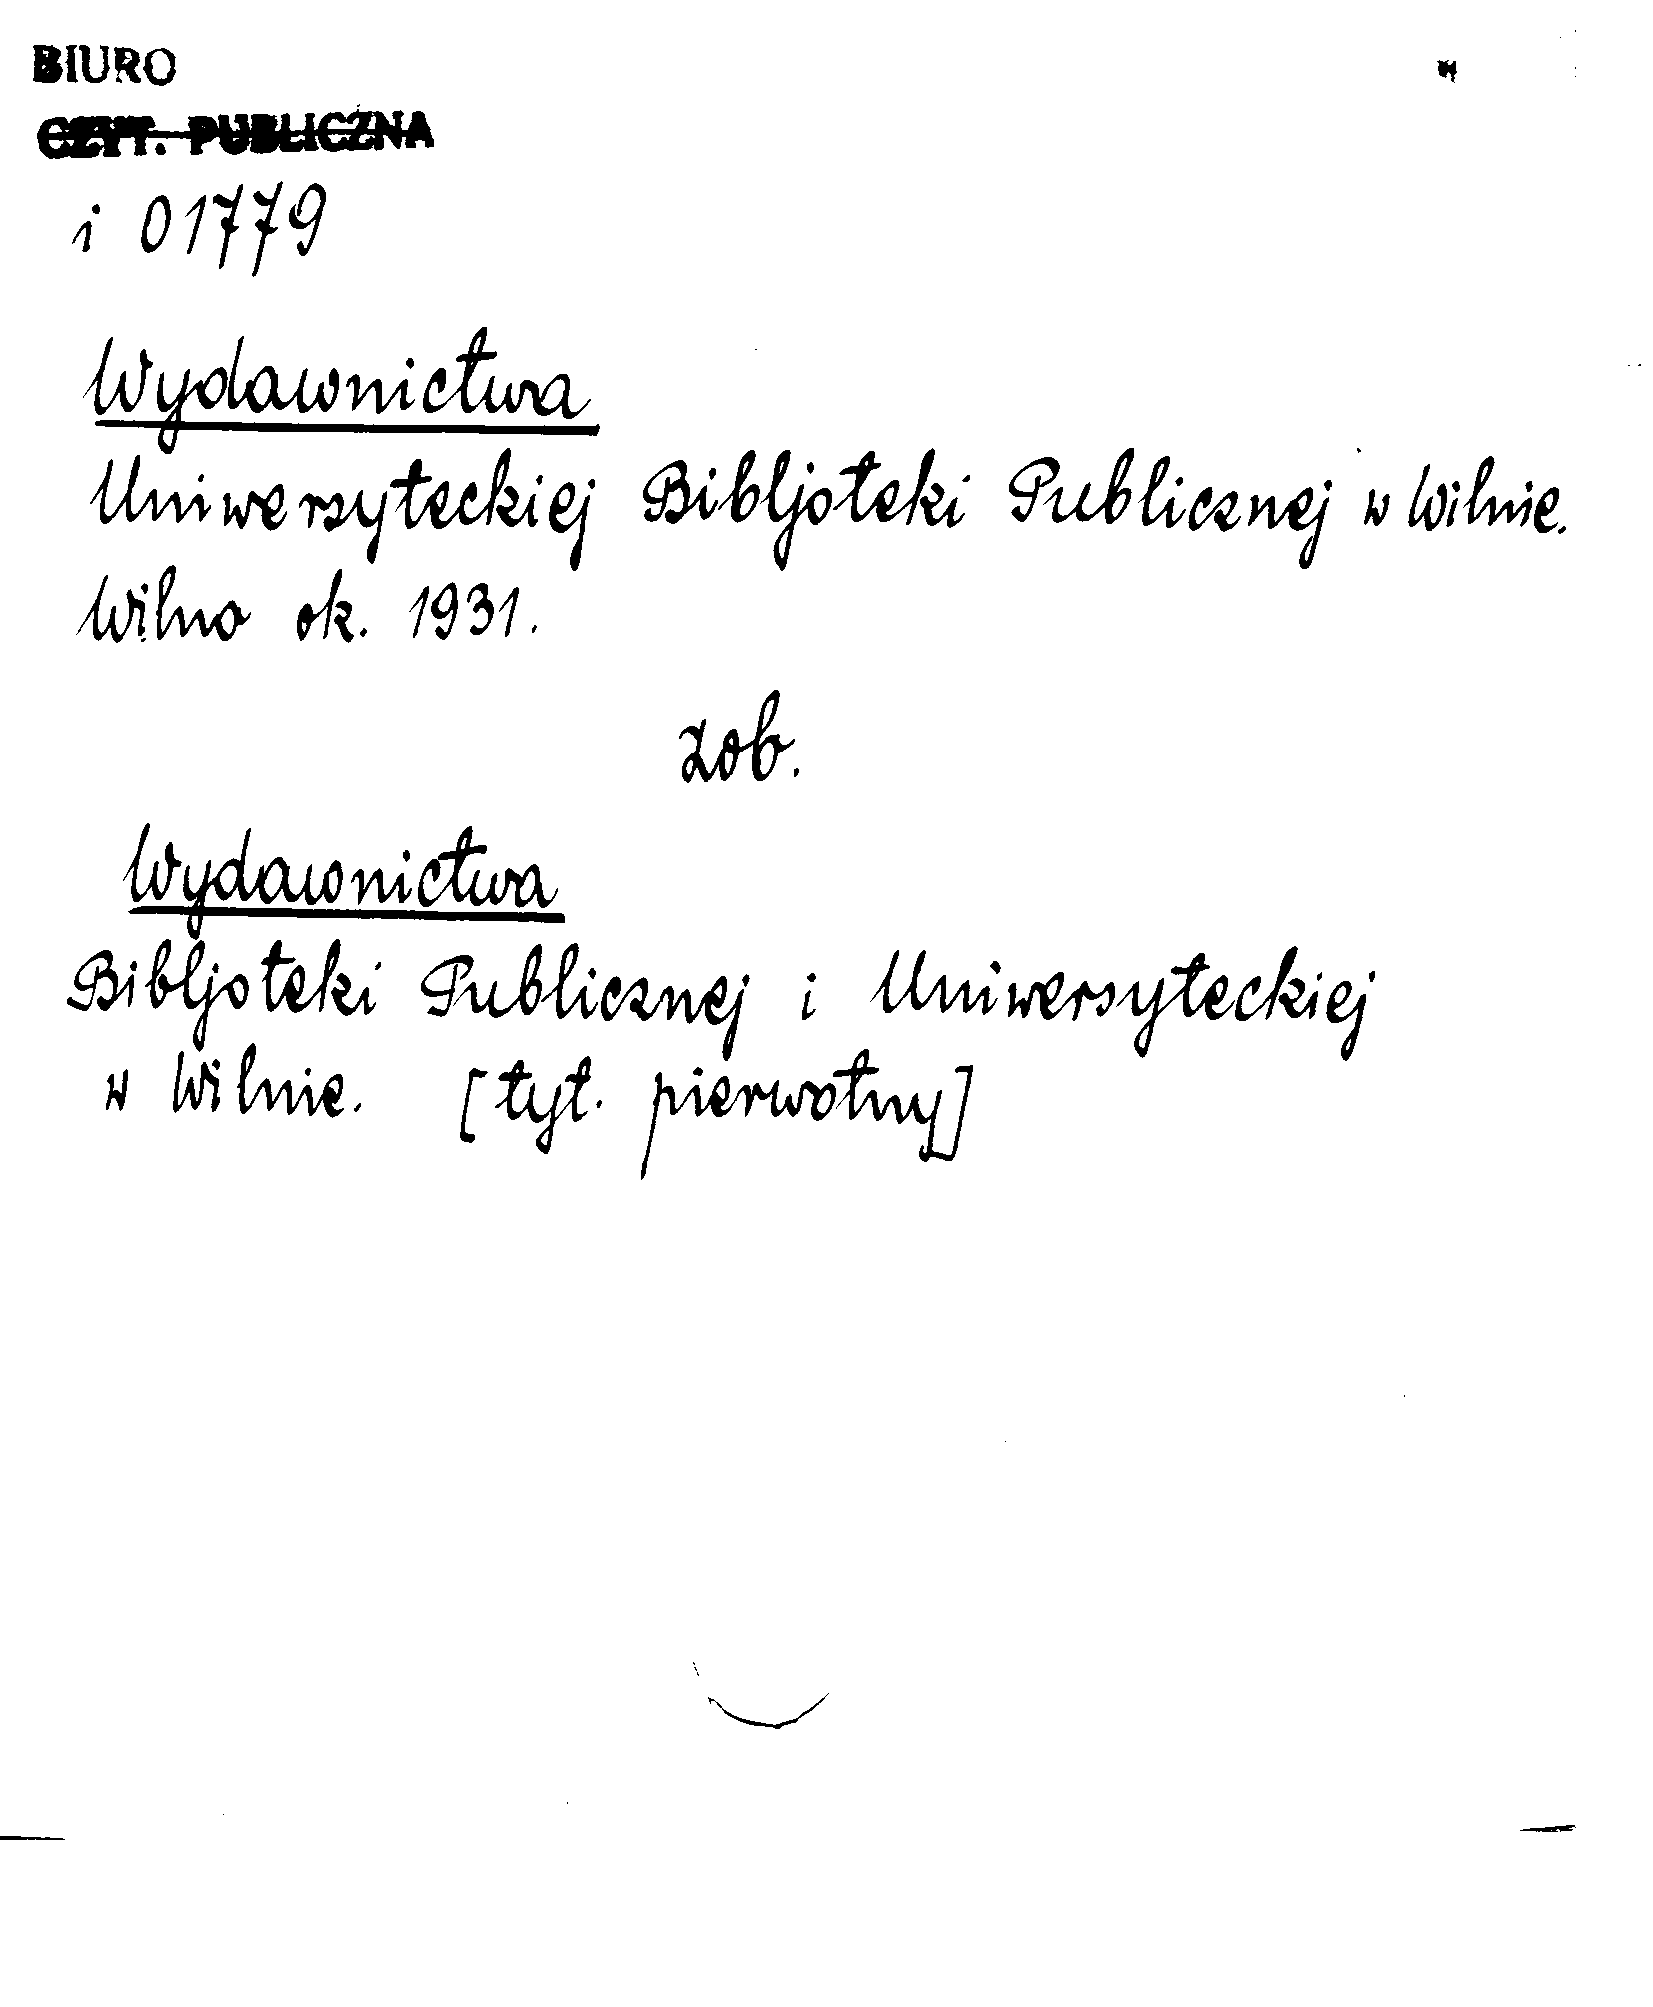 BIURO
CZYT. PUBLICZNA
i 01779
Wydawnictwa
Uniwersyteckiej Bibljoteki Publicznej w Wilnie.
Wilno ok. 1931.
zob.
Wydawnictwa
Bibljoteki Publicznej i Uniwersyteckiej
w Wilnie. [tyt. pierwotny]